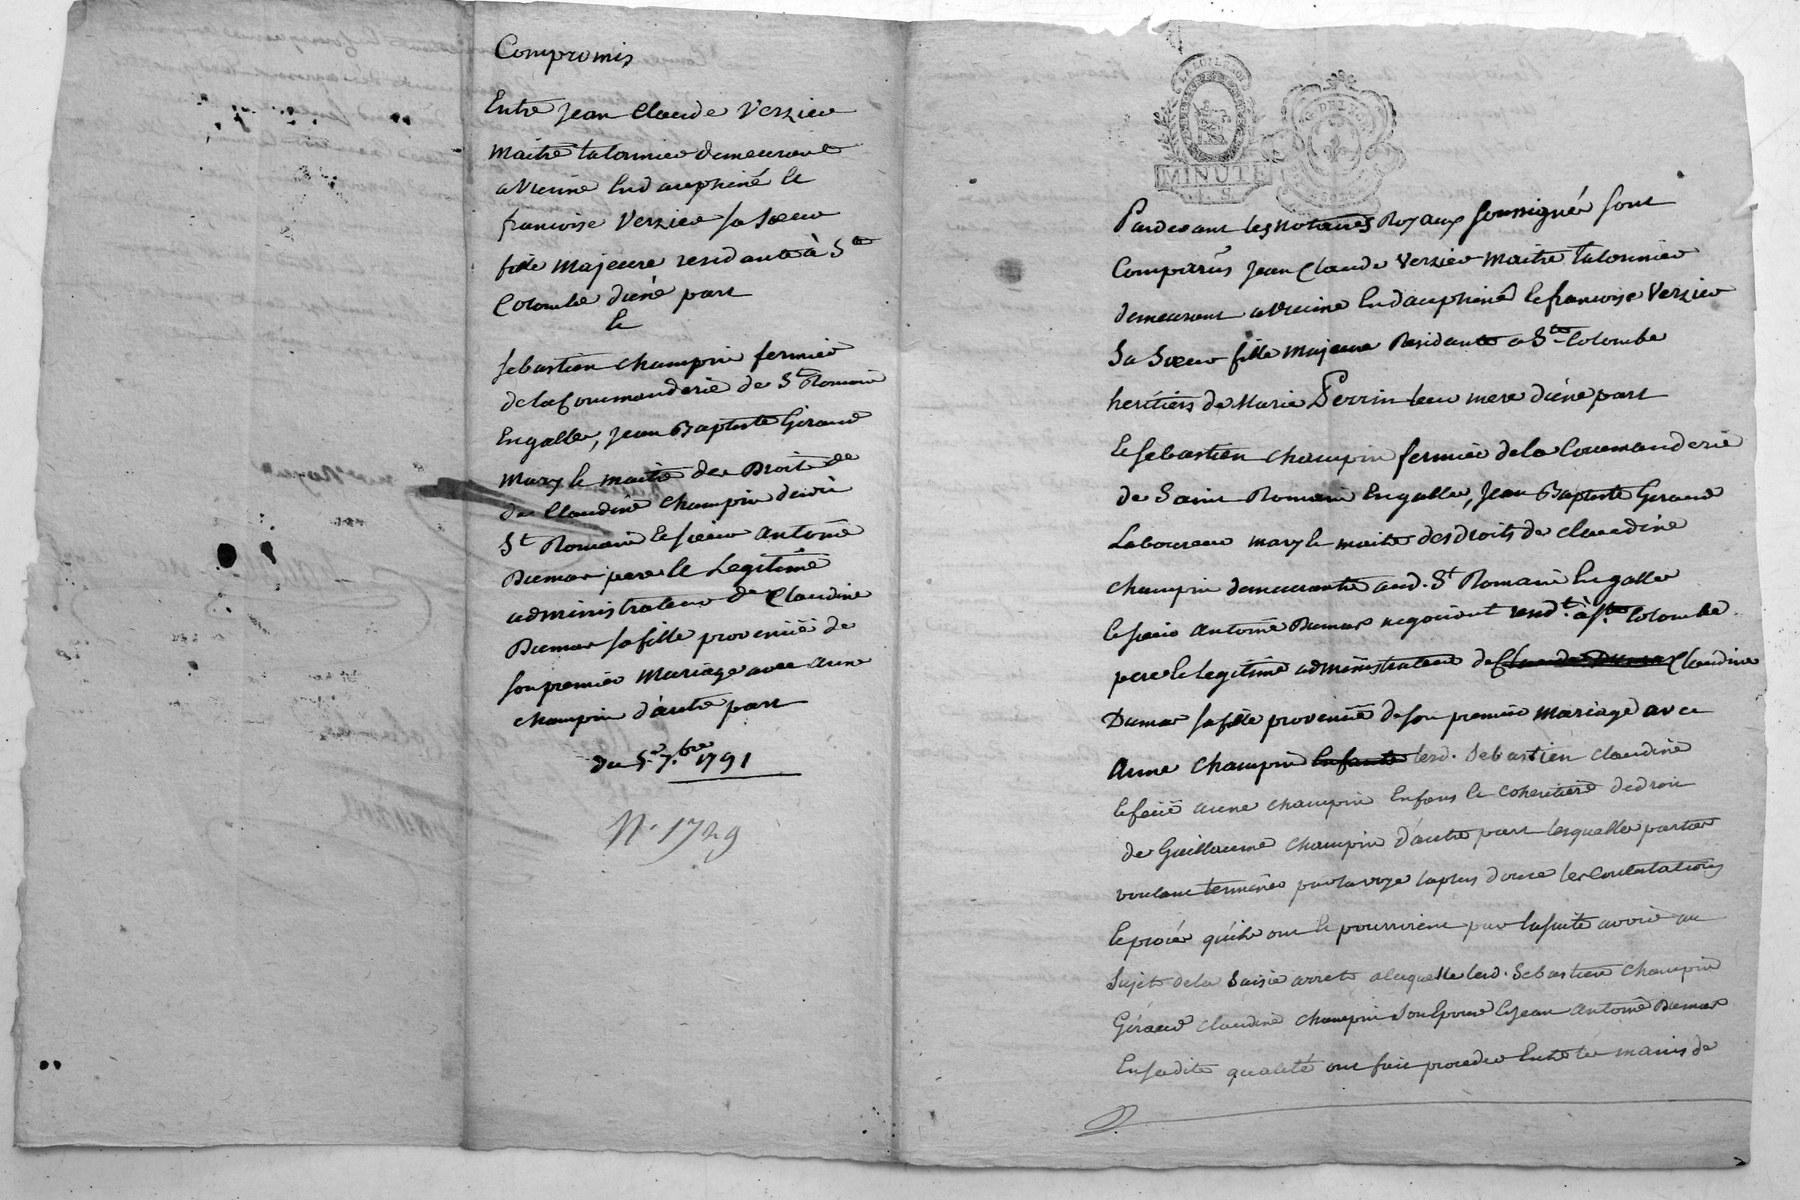 Compromis
Entre Jean Claude Verzieu
Maitre talonnier demeurant
a Vienne en dauphiné et
françoise Verzieu sa Soeur
fille Majeure residante à Ste
Colombe d'une part
Et
Sebastien champin fermier
de la Commanderie de St Romain
Engalle, Jean Baptiste Giraud
Mary et maitre des Droits de
de Claudine Champin de
St Romain le sieur Antoine
Dumas pere et Legitime
administrateur de Claudine
Dumas sa fille provenüe de
son premier Mariage avec anne
champin d'autre part
du 5e 7.bre 1791
N. 1729
LA LOI LE ROI
MINUTE
Pardevant les Notaires Royaux soussignés sont
Comparus Jean Claude Verzieu Maitre talonnier
demeurant a Vienne en dauphiné et françoise Verzieu
Sa Soeur fille Majeure Residante a Ste Colombe
heritiers de Marie Perrin leur mere d'une part
et Sebastien Champin fermier de la Commanderie
de Saint Romain Engalle, Jean Baptiste Giraud
Laboureur mary et maitre des droits de Claudine
Champin demeurante aud. St Romain Engalle
le sieur Antoine Dumas negociant resid.t à Ste Colombe
pere et legitime administrateur de Claudine
Dumas sa fille provenüe de son premier Mariage avec
Anne Champin lesd. Sebastien Claudine
et feüe anne Champin Enfans et coheritiers de droit
de Guillaume Champin d'autre part lesquelles parties
voulant terminer par la voye la plus douce les Contestations
et procés qu'ils ont et pourroient par la suite avoir au
Sujet de la Saisie arrete a laquelle lesd. Sebastien Champin
Giraud Claudine Champin son Epouse et Jean Antoine Dumas
En sadite qualité ont fait proceder Entre les mains de